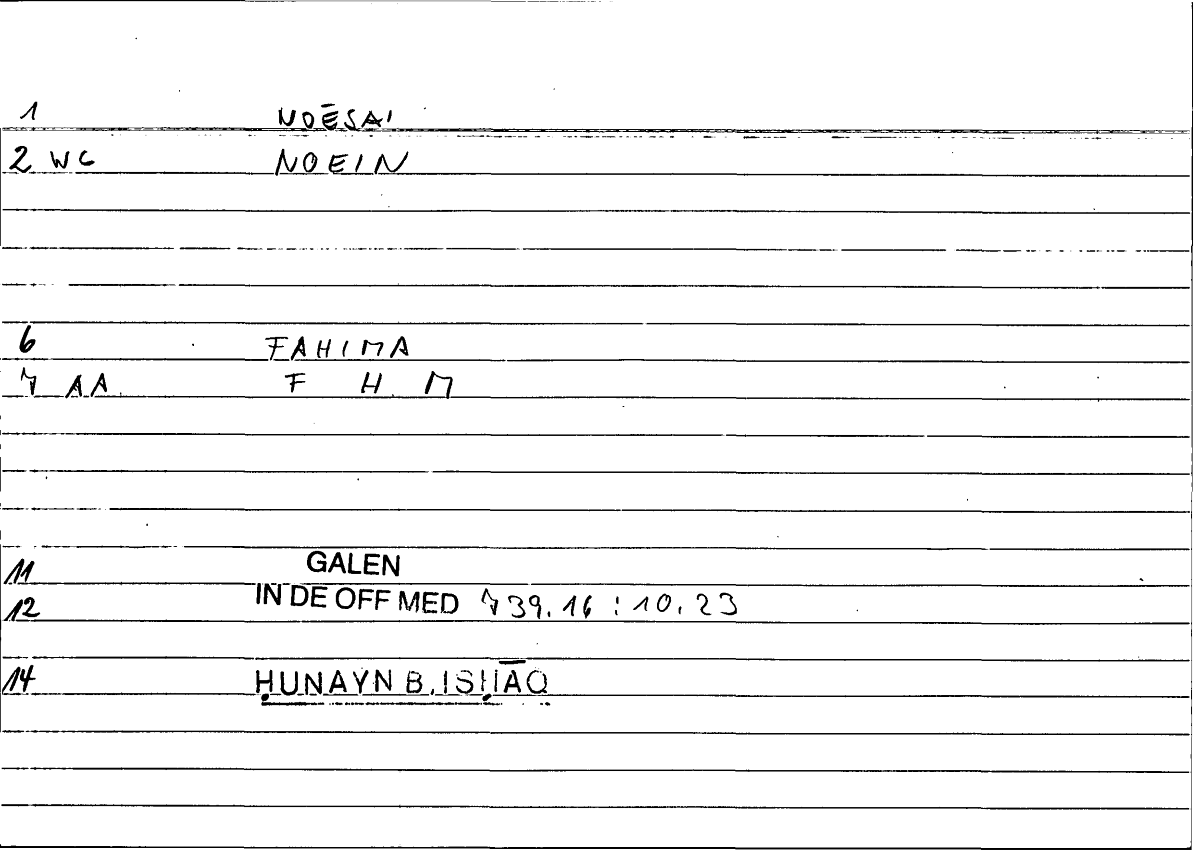 1 NOĒSAI
2 WG NOEIN
6 FAHIMA
7 AA F H M
11 GALEN
12 IN DE OFF MED 739.16 : 10.23
14 ḤUNAYN B. ISḤĀQ